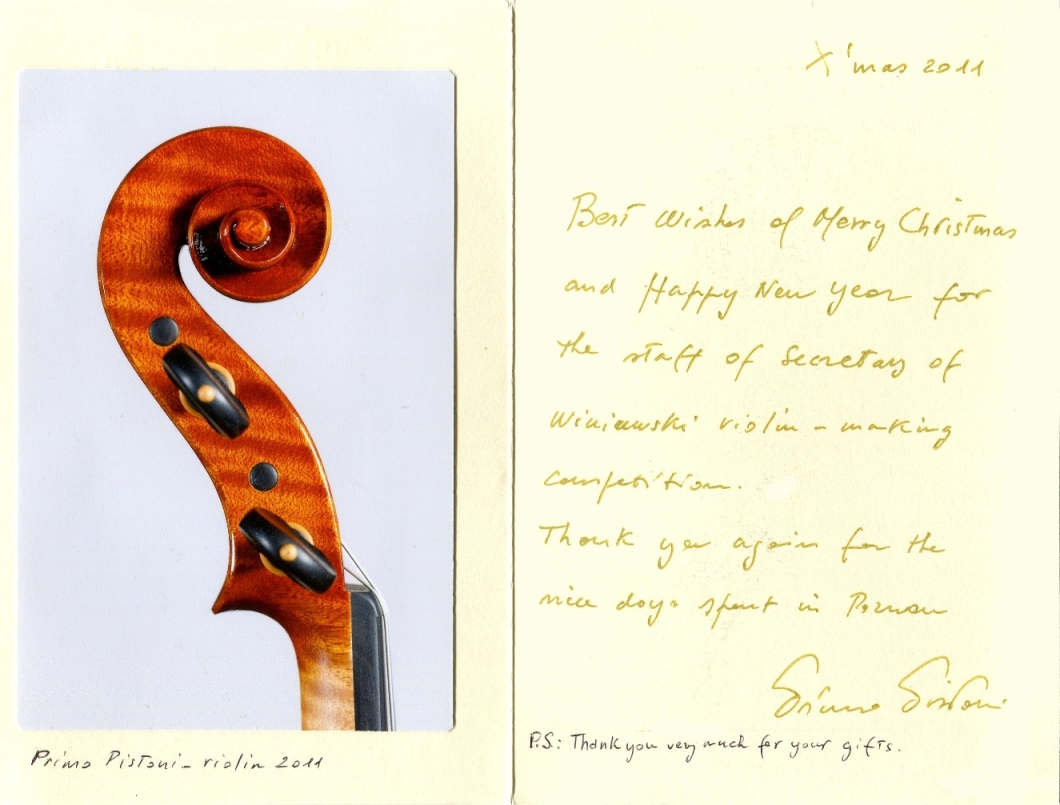 Primo Pistoni - violin 2011
X'mas 2011
Best Wishes of Merry Christmas
and Happy New Year for
the staff of Secretary of
Winiawski violin - making
competition.
Thank you again for the
nice days spent in Poznan
Primo Pistoni
P.S.: Thank you very much for your gifts.